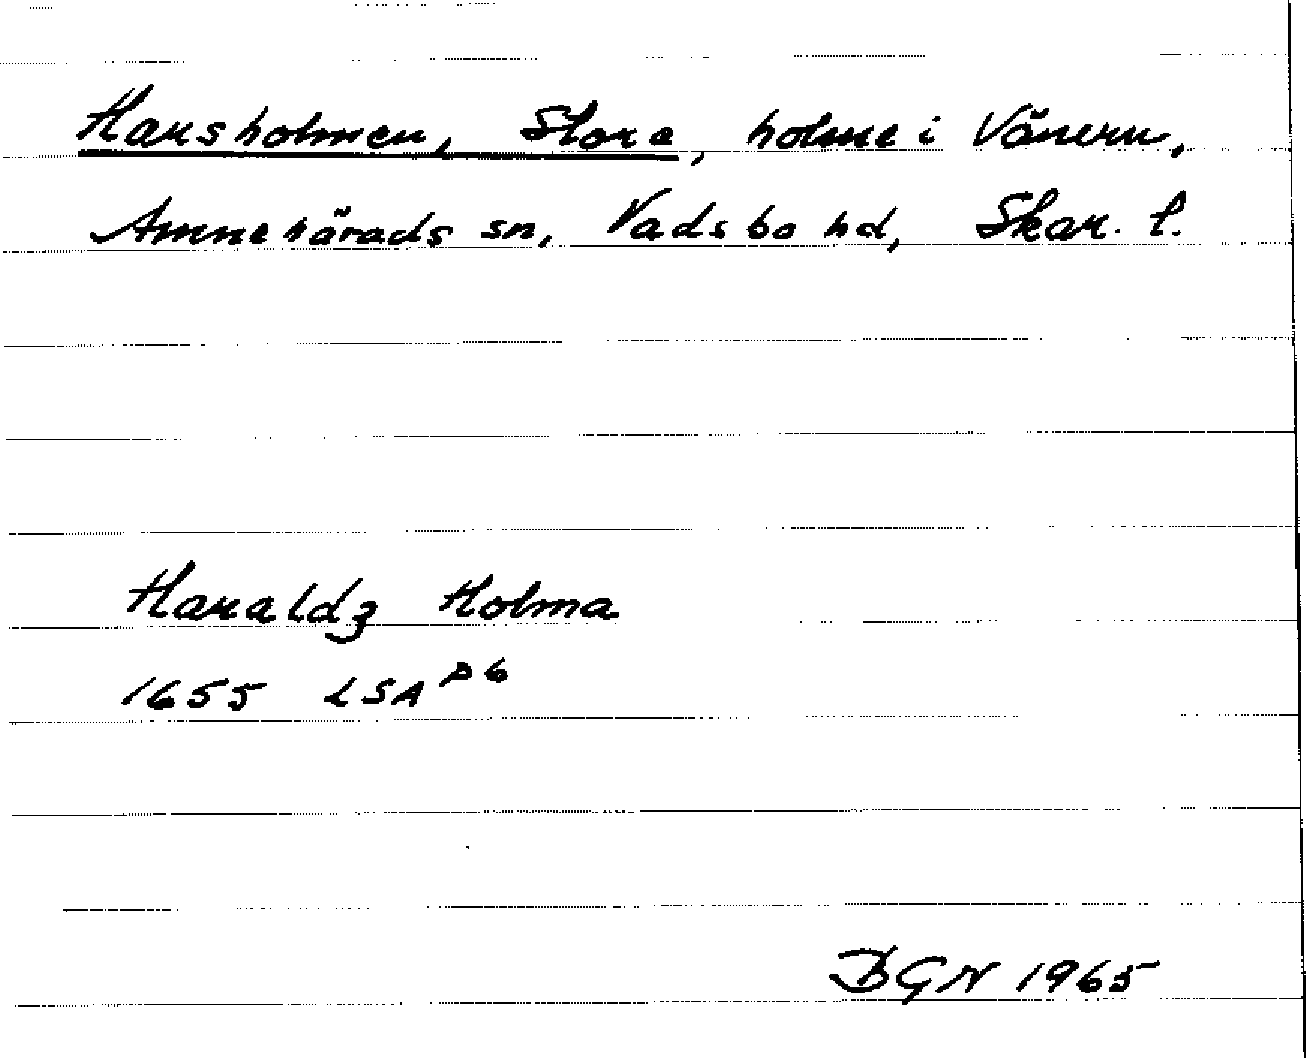 Harsholmen, Stora, holme i Vänern,
Amnehärads sn, Vadsbo hd, Skar. l.
Haraldz Holma
1655 LSA P6
BGN 1965